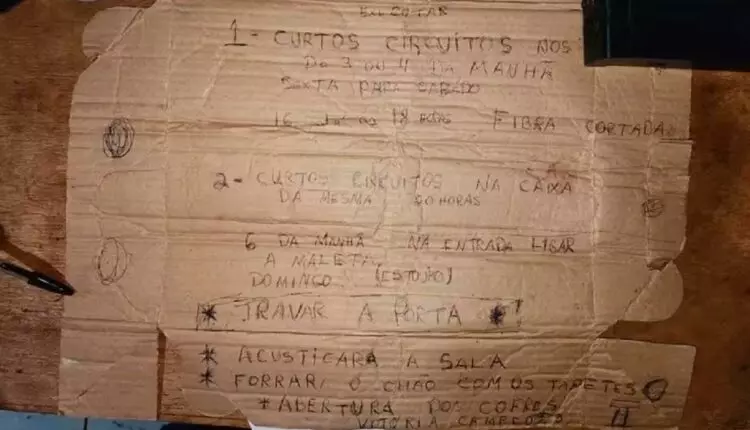 1 - CURTOS CIRCUITOS NOS
DO 3 OU 4 DA MANHÃ
SEXTA PARA SABADO
16 18 HORAS FIBRA CORTADA
2 - CURTOS CIRCUITOS NA CAIXA
DA MESMA 00 HORAS
6 DA MANHÃ NA ENTRADA LIGAR
A MALETA
DOMINGO (ESTOJO)
* TRAVAR A PORTA *
* ACUSTICARA A SALA
* FORRAR O CHÃO COM OS TAPETES
* ABERTURA DOS COFRES
VITORIA